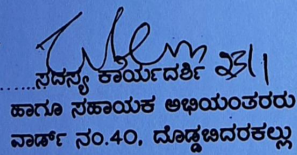 ......ಸದಸ್ಯ ಕಾರ್ಯದರ್ಶಿ 23/1
ಹಾಗೂ ಸಹಾಯಕ ಅಭಿಯಂತರರು
ವಾರ್ಡ್ ನಂ.40, ದೊಡ್ಡಬಿದರಕಲ್ಲು